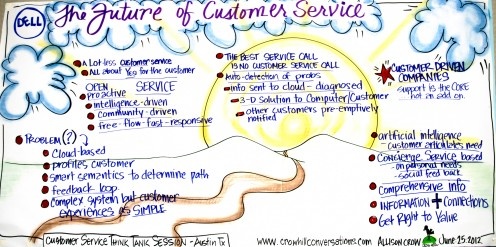 DELL
The Future of Customer Service
A Lot less customer service
All about Yes for the customer
OPEN SERVICE
Proactive
intelligence-driven
Community-driven
free-flow-fast-responsive
PROBLEM(?)
Cloud-based
profiles customer
smart semantics to determine path
feedback loop
Complex system but customer
experiences as SIMPLE
THE BEST SERVICE CALL
IS NO CUSTOMER SERVICE CALL
Auto-detection of probs
info sent to cloud - diagnosed
3-D Solution to Computer/Customer
other customers pre-emptively
notified
CUSTOMER DRIVEN
COMPANIES
support is the CORE
not an add on.
artificial intelligence
- customer articulates need
Concierge Service based
- on personal needs
- social feed back
Comprehensive info
INFORMATION + Connections
Get Right to Value
Customer Service THINK TANK SESSION - Austin TX
www.crowhillconversations.com
ALLISON CROW
June 25. 2012